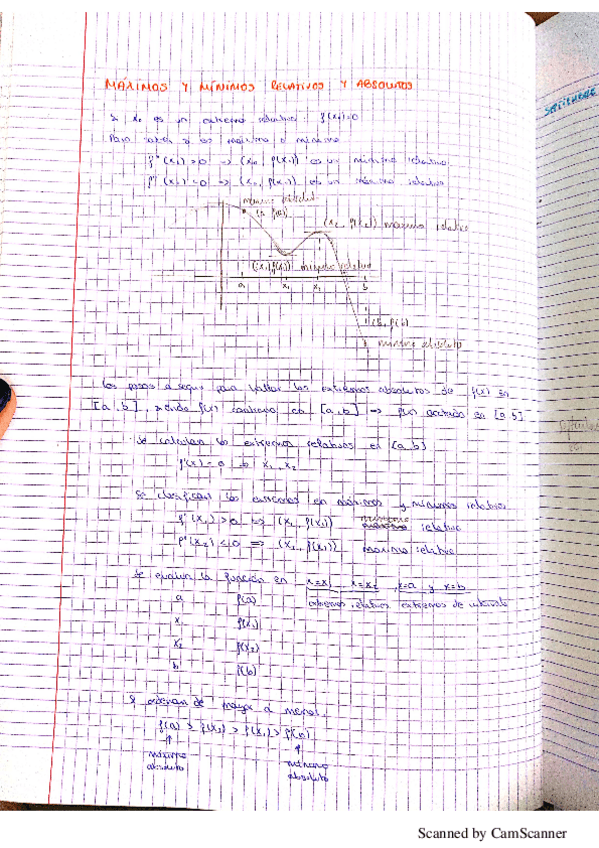 MÁXIMOS Y MÍNIMOS RELATIVOS Y ABSOLUTOS
Si x₀ es un extremo relativo: f'(x₀)=0
Para saber si es máximo o mínimo
f''(x₀)>0 → (x₀, f(x₀)) es un mínimo relativo
f''(x₀)<0 → (x₀, f(x₀)) es un máximo relativo
máximo absoluto
(a, f(a))
(x₂, f(x₂)) máximo relativo
(x₁, f(x₁)) mínimo relativo
a x₁ x₂ b
(b, f(b))
mínimo absoluto
Los pasos a seguir para hallar los extremos absolutos de f(x) en
[a,b], siendo f(x) continua en [a,b] → f(x) acotada en [a,b]
Se calculan los extremos relativos en [a,b]
x₁, x₂
Se clasifican los extremos en máximos y mínimos relativos
f''(x₁)>0 => (x₁, f(x₁)) mínimo relativo
f''(x₂)<0 => (x₂, f(x₂)) máximo relativo
Se evalúan la función en x=x₁, x=x₂, x=a y x=b
extremos relativos extremos de intervalo
a f(a)
x₁ f(x₁)
x₂ f(x₂)
b f(b)
Se ordenan de mayor a menor.
f(a) > f(x₂) > f(x₁) > f(b)
↑ ↑
máximo mínimo
absoluto absoluto
Scanned by CamScanner